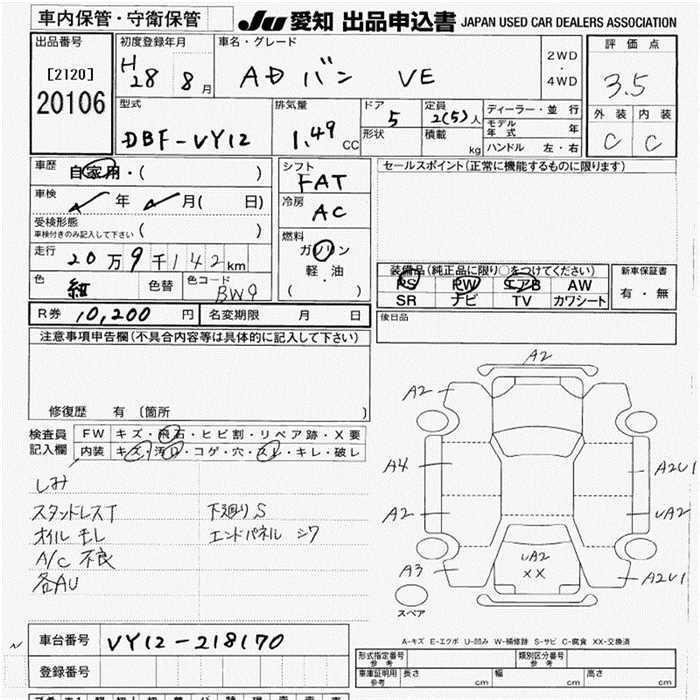 車内保管・守衛保管
JU 愛知 出品申込書 JAPAN USED CAR DEALERS ASSOCIATION
出品番号
[2120]
20106
初度登録年月
H28 8月
車名・グレード
ADバン VE
2WD
・
4WD
評価点
3.5
型式
DBF-VY12
排気量
1.49 CC
ドア
5
形状
定員
2(5)人
積載
kg
ディーラー・並行
モデル年式 年
ハンドル 左・右
外装 内装
C C
車歴
自家用・( )
車検
年 月( 日)
受検形態
車検付きのみ記入して下さい ( )
走行
20万9千142km
色
色替
色コード
BW9
シフト
FAT
冷房
AC
燃料
ガソリン
軽・油
( )
セールスポイント(正常に機能するものに限ります)
装備品(純正品に限り○をつけてください)
PS PW エアB AW
SR ナビ TV カワシート
新車保証書
有・無
R券 10,200 円
名変期限 月 日
後日品
注意事項申告欄(不具合内容等は具体的に記入して下さい)
修復歴 有 〔箇所 〕
検査員
記入欄
FW キズ・飛石・ヒビ割・リペア跡・X要
内装 キズ・汚れ・コゲ・穴・スレ・キレ・破レ
しみ
スタンドレスT 下廻りS
オイルモレ エンドパネル シワ
A/C 不良
各AU
A2
A2
A4 A2U1
A2 UA2
UA2
XX
A3 A2U1
スペア
A-キズ E-エクボ U-凹み W-補修跡 S-サビ C-腐食 XX-交換済
車台番号 VY12-218170
登録番号
形式指定番号
参考
類別区分番号
参考
車庫証明用
参考
長さ cm 幅 cm 高さ cm